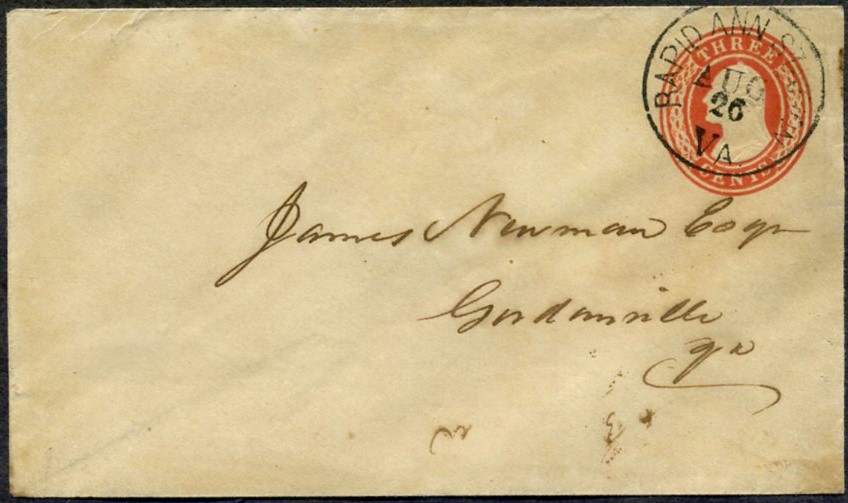 RAPID ANN STATION
AUG
26
VA.
THREE
CENTS
James Newman Esqr
Gordonsville
Va